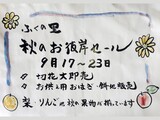 ふくの里
秋のお彼岸セール
9月17〜23日
切花大即売
お供え用おはぎ・餅他販売
梨・りんご他秋の果物が揃っています